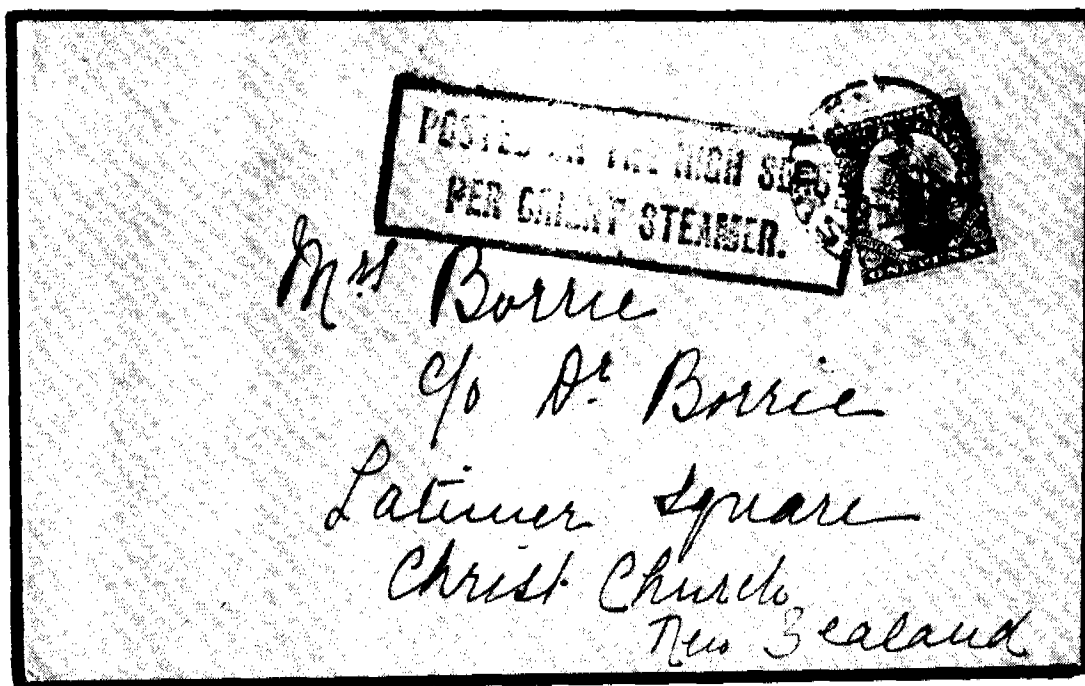 POSTED ON THE HIGH SEAS
PER ORIENT STEAMER.
Mrs Borrie
c/o Dr. Borrie
Latimer Square
Christ Church
New Zealand